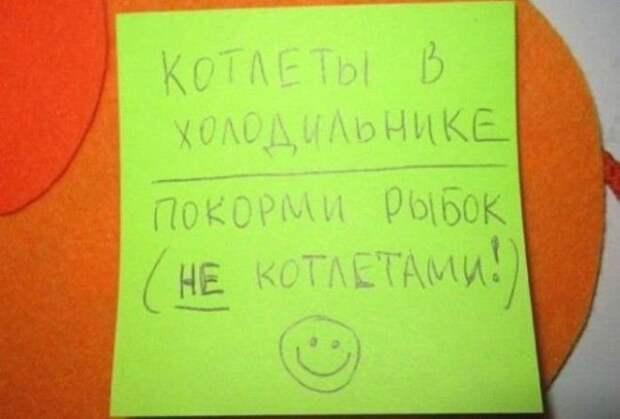 КОТЛЕТЫ В
ХОЛОДИЛЬНИКЕ
ПОКОРМИ РЫБОК
(НЕ КОТЛЕТАМИ!)